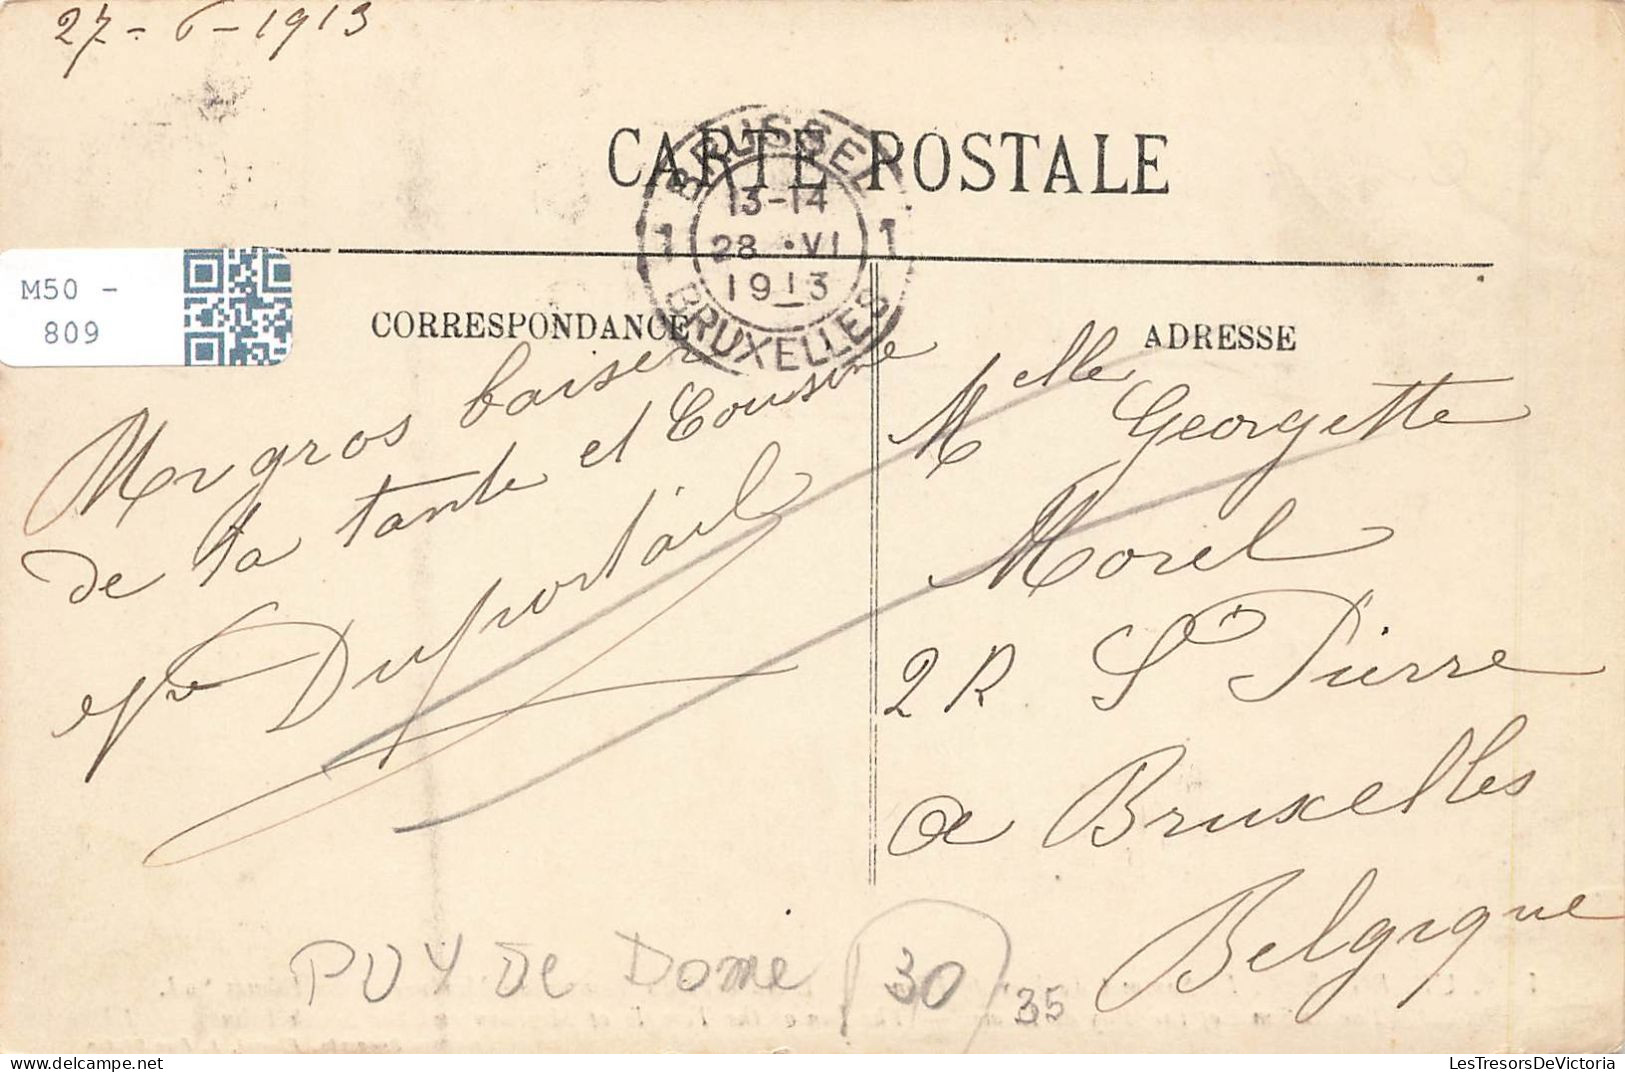 27-6-1913
CARTE POSTALE
BRUSSEL
13-14
1 28 •VI 1
1913
BRUXELLES
M50 -
809
CORRESPONDANCE
ADRESSE
Un gros baiser
de ta tante et Cousine
Duportail
Melle Georgette
Morel
2 R St Pierre
a Bruxelles
Belgique
PUY De Dome
30
35
LesTresorsDeVictoria